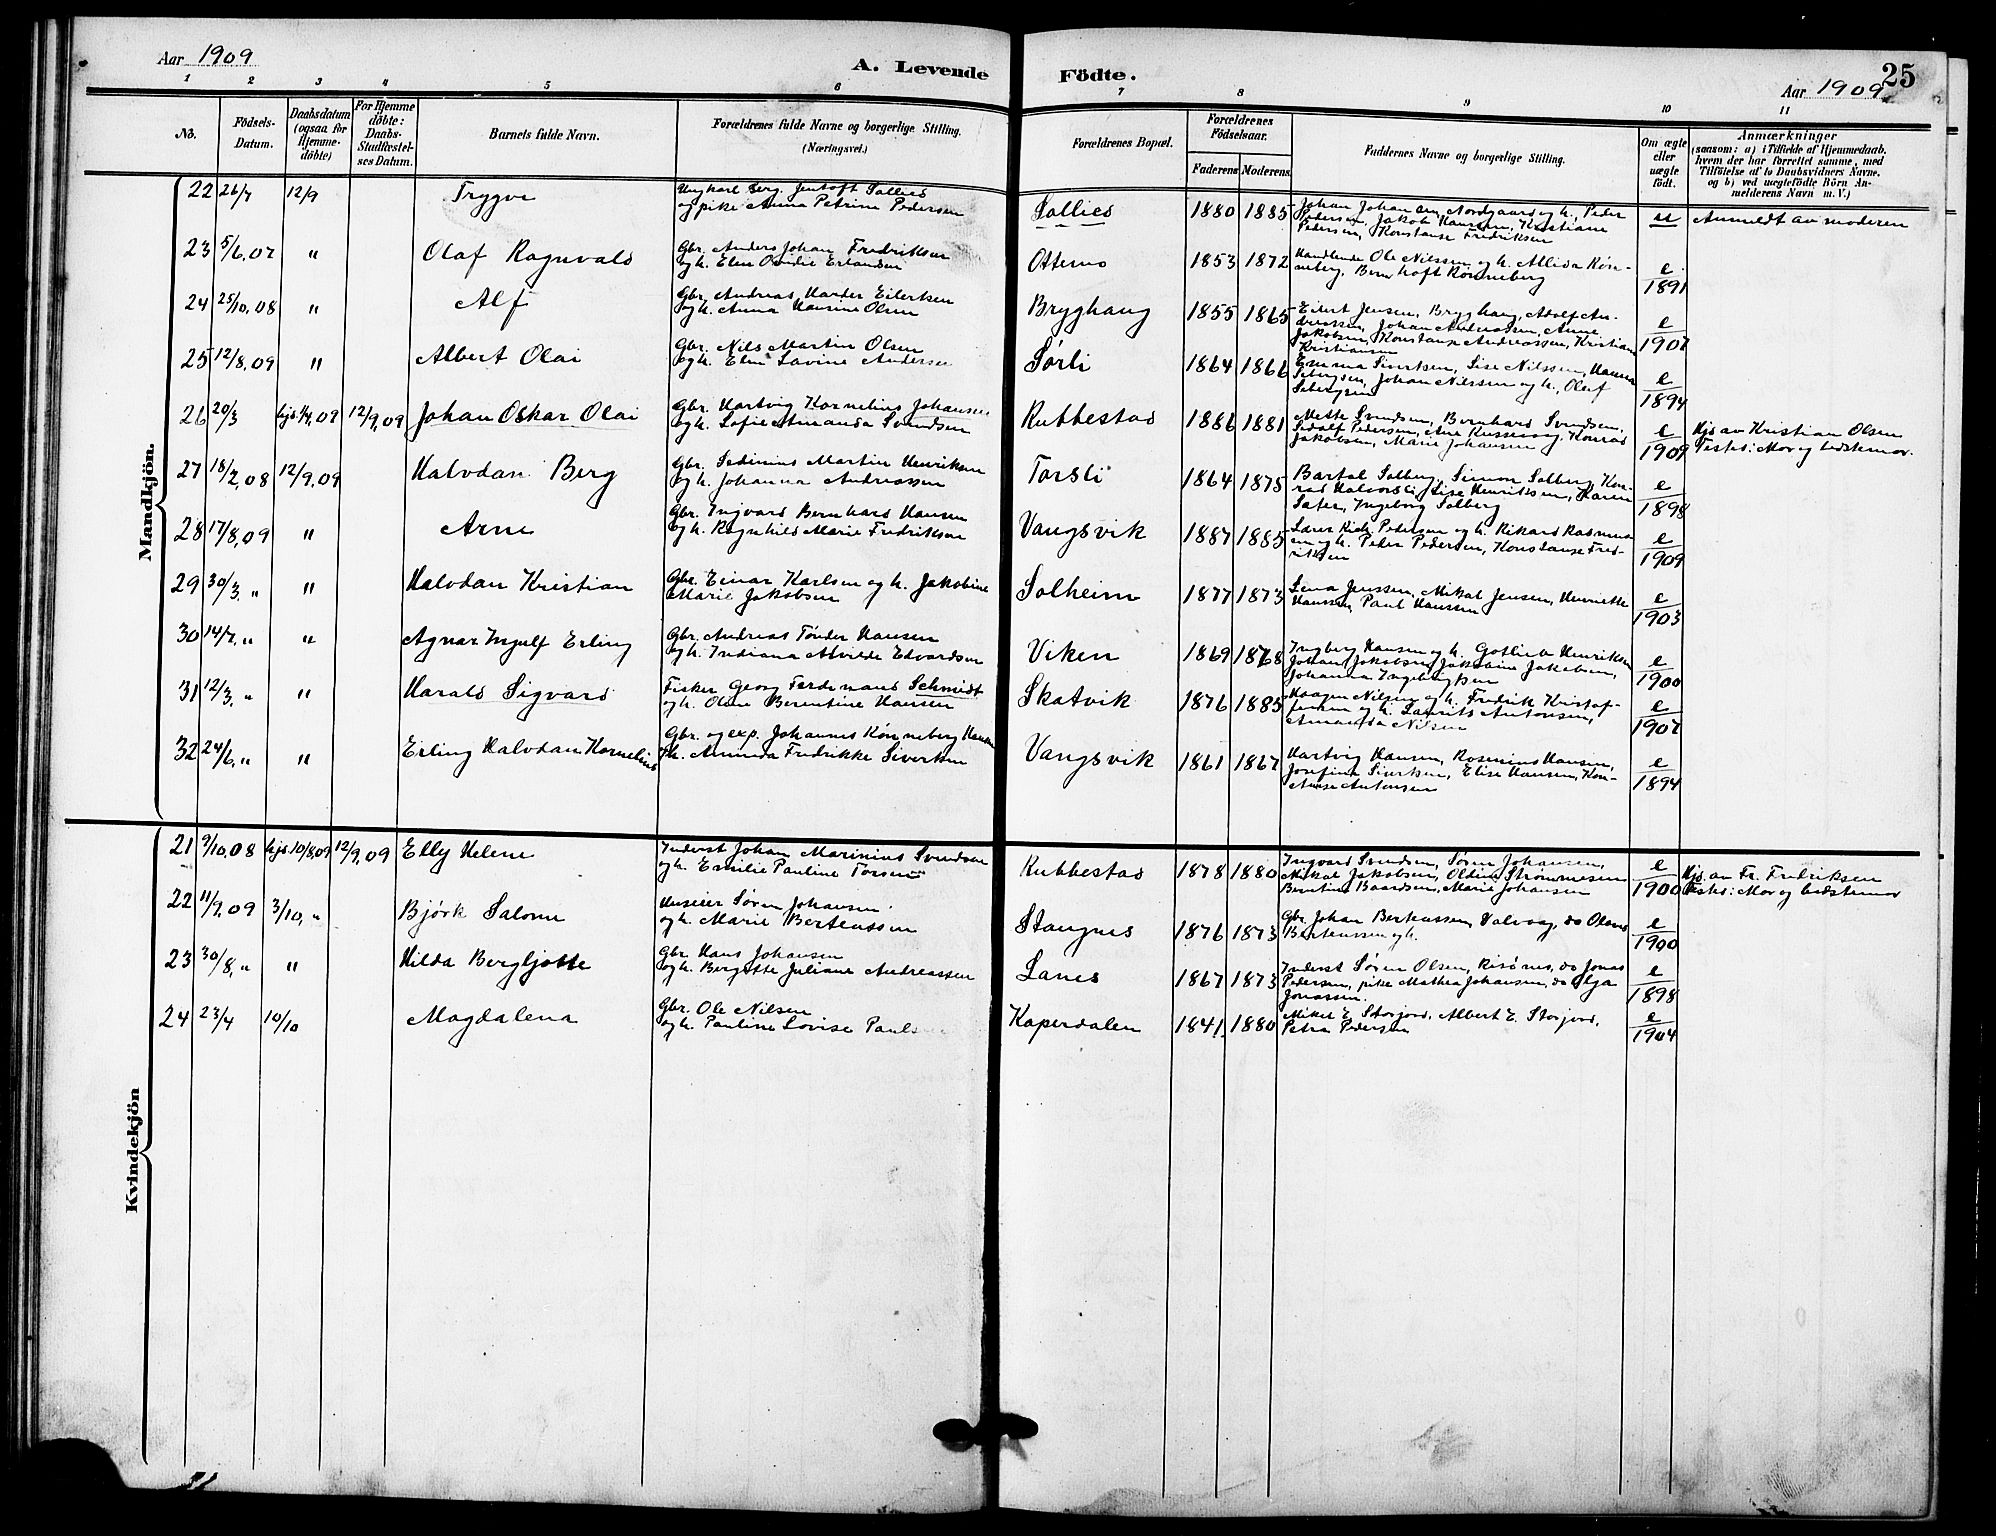 Aar 1909
A. Levende Födte.
25
Aar 1909
1 2 3 4 5 6 7 8 9 10 11
No.
Födsels-Datum.
Daabsdatum (ogsaa for Hjemme-döbte)
For Hjemme döbte: Daabs-Stadfæstel-ses Datum.
Barnets fulde Navn.
Forældrenes fulde Navne og borgerlige Stilling. (Næringsvei.)
Forældrenes Bopæl.
Forældrenes Födselsaar.
Faderens Moderens
Faddernes Navne og borgerlige Stilling.
Om ægte eller uægte födt.
Anmærkninger (saasom: a) i Tilfælde af Hjemmedaab. hvem der har forrettet samme, med Tilföielse af to Daabsvidners Navne. og b) ved uægtefödte Börn An-melderens Navn m. V.)
Mandkjön.
22 26/7 12/9 Trygve Ungkarl Berg. Jentoft Sollies og pike Anna Petrine Pedersen Sollies 1880 1885 Johan Johansen, Nordgaard og h., Peder Pedersen, Jakob Hansen, Kristiane Pedersen, Konstanse Fredriksen u Anmeldt av moderen
23 5/6,07 " Olaf Ragnvald Gbr. Anders Johan Fredriksen og h. Elen Ovidie Erlandsen Ottermo 1853 1872 Handlende Ole Nilssen og h. Allida Røn-neberg, Bernhoft Rønneberg e 1891
24 25/10,08 " Alf Gbr. Andreas Harder Eilertsen og h. Anna Hansine Olsen Bryghaug 1855 1865 Eilert Jensen, Bryghaug, Adolf An-dreassen, Johan Andreassen, Anne Jakobsen, Konstanse Andreassen, Kristian Kristiansen e 1907
25 12/8,09 " Albert Olai Gbr. Nils Martin Olsen og h. Elen Lavine Anderse Sørli 1864 1866 Emma Sivertsen, Lise Nilssen, Johan Nilssen og h., Oluf e 1894
26 20/3 hjd. 1/4,09 12/9,09 Johan Oskar Olai Gbr. Hartvig Kornelius Johansen og h. Sofie Amanda Svendsen Rubbestad 1886 1881 Mette Svendsen, Bernhard Svendsen, Sedolf Pedersen, Konrad Jakobsen, Marie Johansen e 1909 Hjd. av Kristian Olsen Testes: Mor og bedstemor.
27 18/2,08 12/9,09 Halvdan Berg Gbr. Sedenius Martin Henriksen og h. Johanna Andreassen Torsli 1864 1875 Bartol Solberg, Simon Solberg, Kon-rad Halvorsli, Lise Henriksen, Karen Sater, Ingeborg Solberg e 1898
28 17/8,09 " Arne Gbr. Ingvard Bernhard Hansen og h. Ragnhild Marie Fredriksen Vangsvik 1887 1885 Lærer Pedersen og h. Rikard Rasmus-sen og h. Peder Pedersen, Konstanse Fred-riksen e 1909
29 30/3, " " Halvdan Kristian Gbr. Einar Karlsen og h. Jakobine Marie Jakobsen Solheim 1877 1873 Lena Jenssen, Mikal Jensen, Henriette Hanssen, Paul Hanssen e 1903
30 14/7, " " Agnar Ingulf Erling Gbr. Andreas Tønder Hansen og h. Indiana Alvilde Edvardsen Viken 1869 1868 Ingberg Hansen og h. Gotlieb Henriksen Johan Jakobsen, Jakobine Jakobsen, Johanna Ingebrigtsen e 1900
31 12/3, " " Harald Sigvard Fisker Georg Ferdinand Schmidt og h. Oline Berentine Hansen Skatvik 1876 1885 Haagen Nilsen og h. Fredrik Kristof-fersen og h. Laurits Antonsen, Amanda Nilsen e 1907
32 24/6, " " Erling Halvdan Kornelius Gbr. og exp. Johannes Rønneberg Hansen og h. Amunda Fredrikke Sivertsen Vangsvik 1861 1867 Hartvig Hansen, Rosenius Hansen, Josefine Sivertsen, Elise Hansen, Kon-stanse Antonsen e 1894
Kvindekjön
21 9/10,08 hjd. 10/8,09 12/9,09 Elly Helene Inderst Johan Marinius Svendsen og h. Emilie Pauline Torsen Rubbestad 1878 1880 Ingvard Svendsen, Søren Johansen, Mikal Jakobsen, Oldine Strømmesen Berntine Baardsen, Marie Johansen e 1900 Hjd. av Fr. Fredriksen Testes: Mor og bedstemor
22 11/9,09 3/10, " Bjørk Salome Huseier Søren Johansen og h. Marie Berteussen Stangnes 1876 1873 Gbr. Johan Berteussen, Valvaag, do Olaus Berteussen og h. e 1900
23 30/8, " " Hilda Bergljotte Gbr. Hans Johansen og h. Bergitte Juliane Andreassen Lanes 1867 1873 Inderst Søren Olsen, Risønes, do Jonas Pedersen, pike Mathea Johansen, do Olja Jonassen. e 1898
24 23/4 10/10 Magdalena Gbr. Ole Nilsen og h. Pauline Lovise Pauls Kaperdalen 1841 1880 Mikel E. Storjord, Albert E. Storjord, Petra Pedersen e 1904